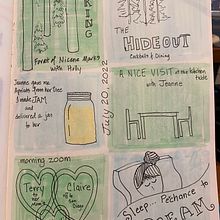 KING
Forest of Nisene Marks
with Holly
THE
HIDEOUT
Cocktails & Dining
Jeanne gave me
Apricots from her Tree
I made JAM
and
delivered a jar
to her
July 20, 2022
A NICE VISIT at the kitchen
table
with Jeanne
morning zoom
Terry
to
her
Claire
San
Diego
Sleep... Perchance to
DREAM